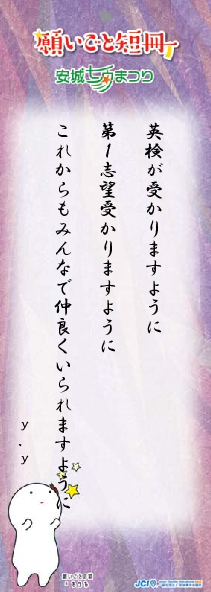 願いごと短冊
安城七夕まつり
英検が受かりますように
第1志望受かりますように
これからもみんなで仲良くいられますように
y.y
JCI